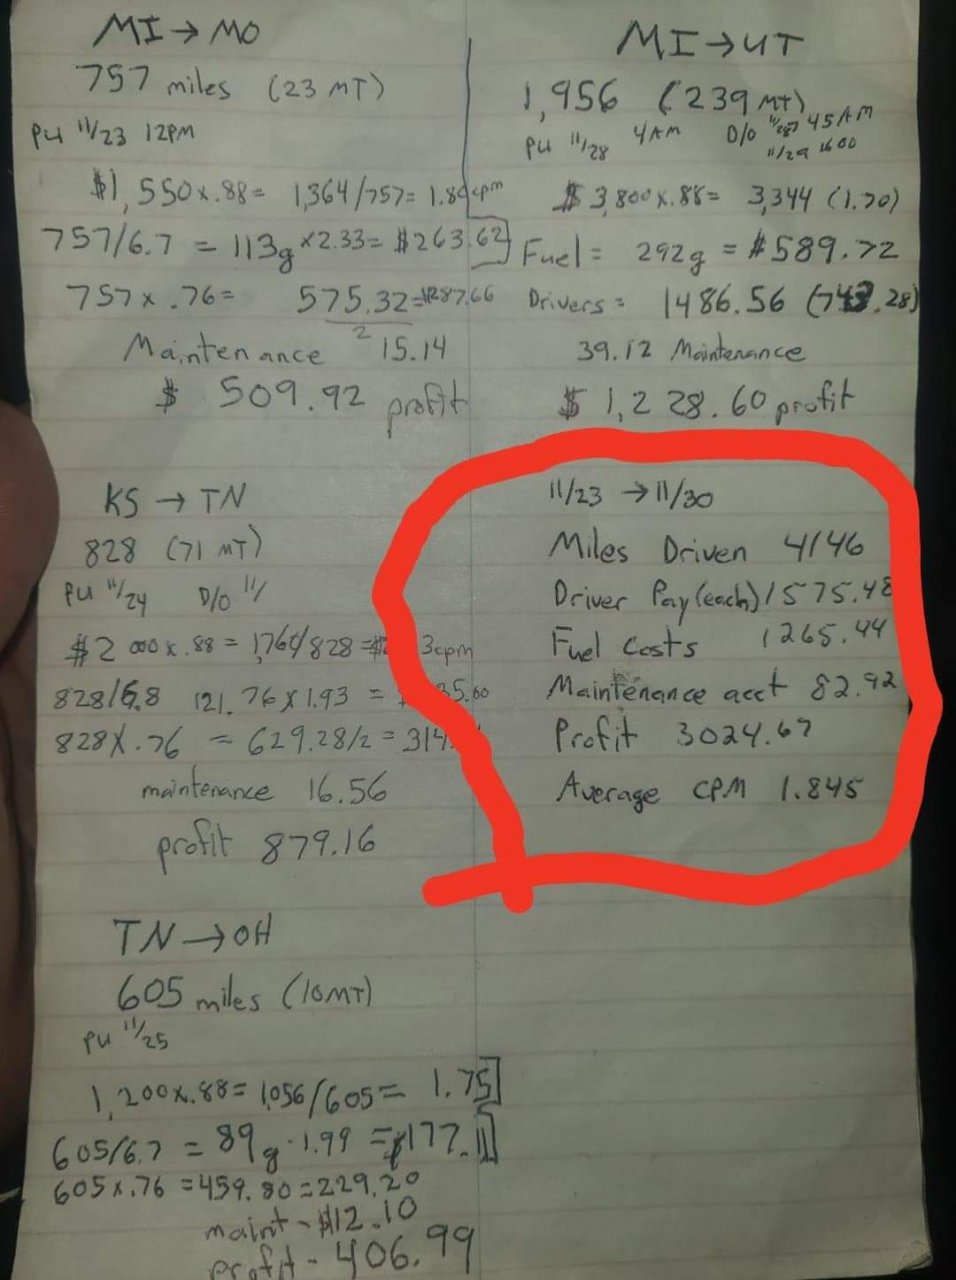 MI → MO
757 miles (23 MT)
PU 11/23 12PM
$1,550 x .88 = 1,364/757 = 1.80cpm
757/6.7 = 113g x 2.33 = $263.62
757 x .76 = 575.32 = 287.66
2
Maintenance 15.14
$ 509.92 profit
MI → UT
1,956 (239 MT)
PU 11/28 4AM D/O 45AM
11/29 1600
$3,800 x .88 = 3,344 (1.70)
Fuel = 292g = $589.72
Drivers = 1486.56 (743.28)
39.12 Maintenance
$ 1,228.60 profit
KS → TN
828 (71 MT)
PU 11/24 D/O 11/
$2000 x .88 = 1,760/828 = 3cpm
828/6.8 121.76 x 1.93 = 35.60
828 x .76 = 629.28/2 = 314.
maintenance 16.56
profit 879.16
11/23 → 11/30
Miles Driven 4146
Driver Pay (each) 1575.48
Fuel Costs 1265.44
Maintenance acct 82.92
Profit 3024.67
Average CPM 1.845
TN → OH
605 miles (10MT)
PU 11/25
1,200 x .88 = 1,056/605 = 1.75
605/6.7 = 89g · 1.99 = $177.11
605 x .76 = 459.80 = 229.20
maint - $12.10
profit - 406.99